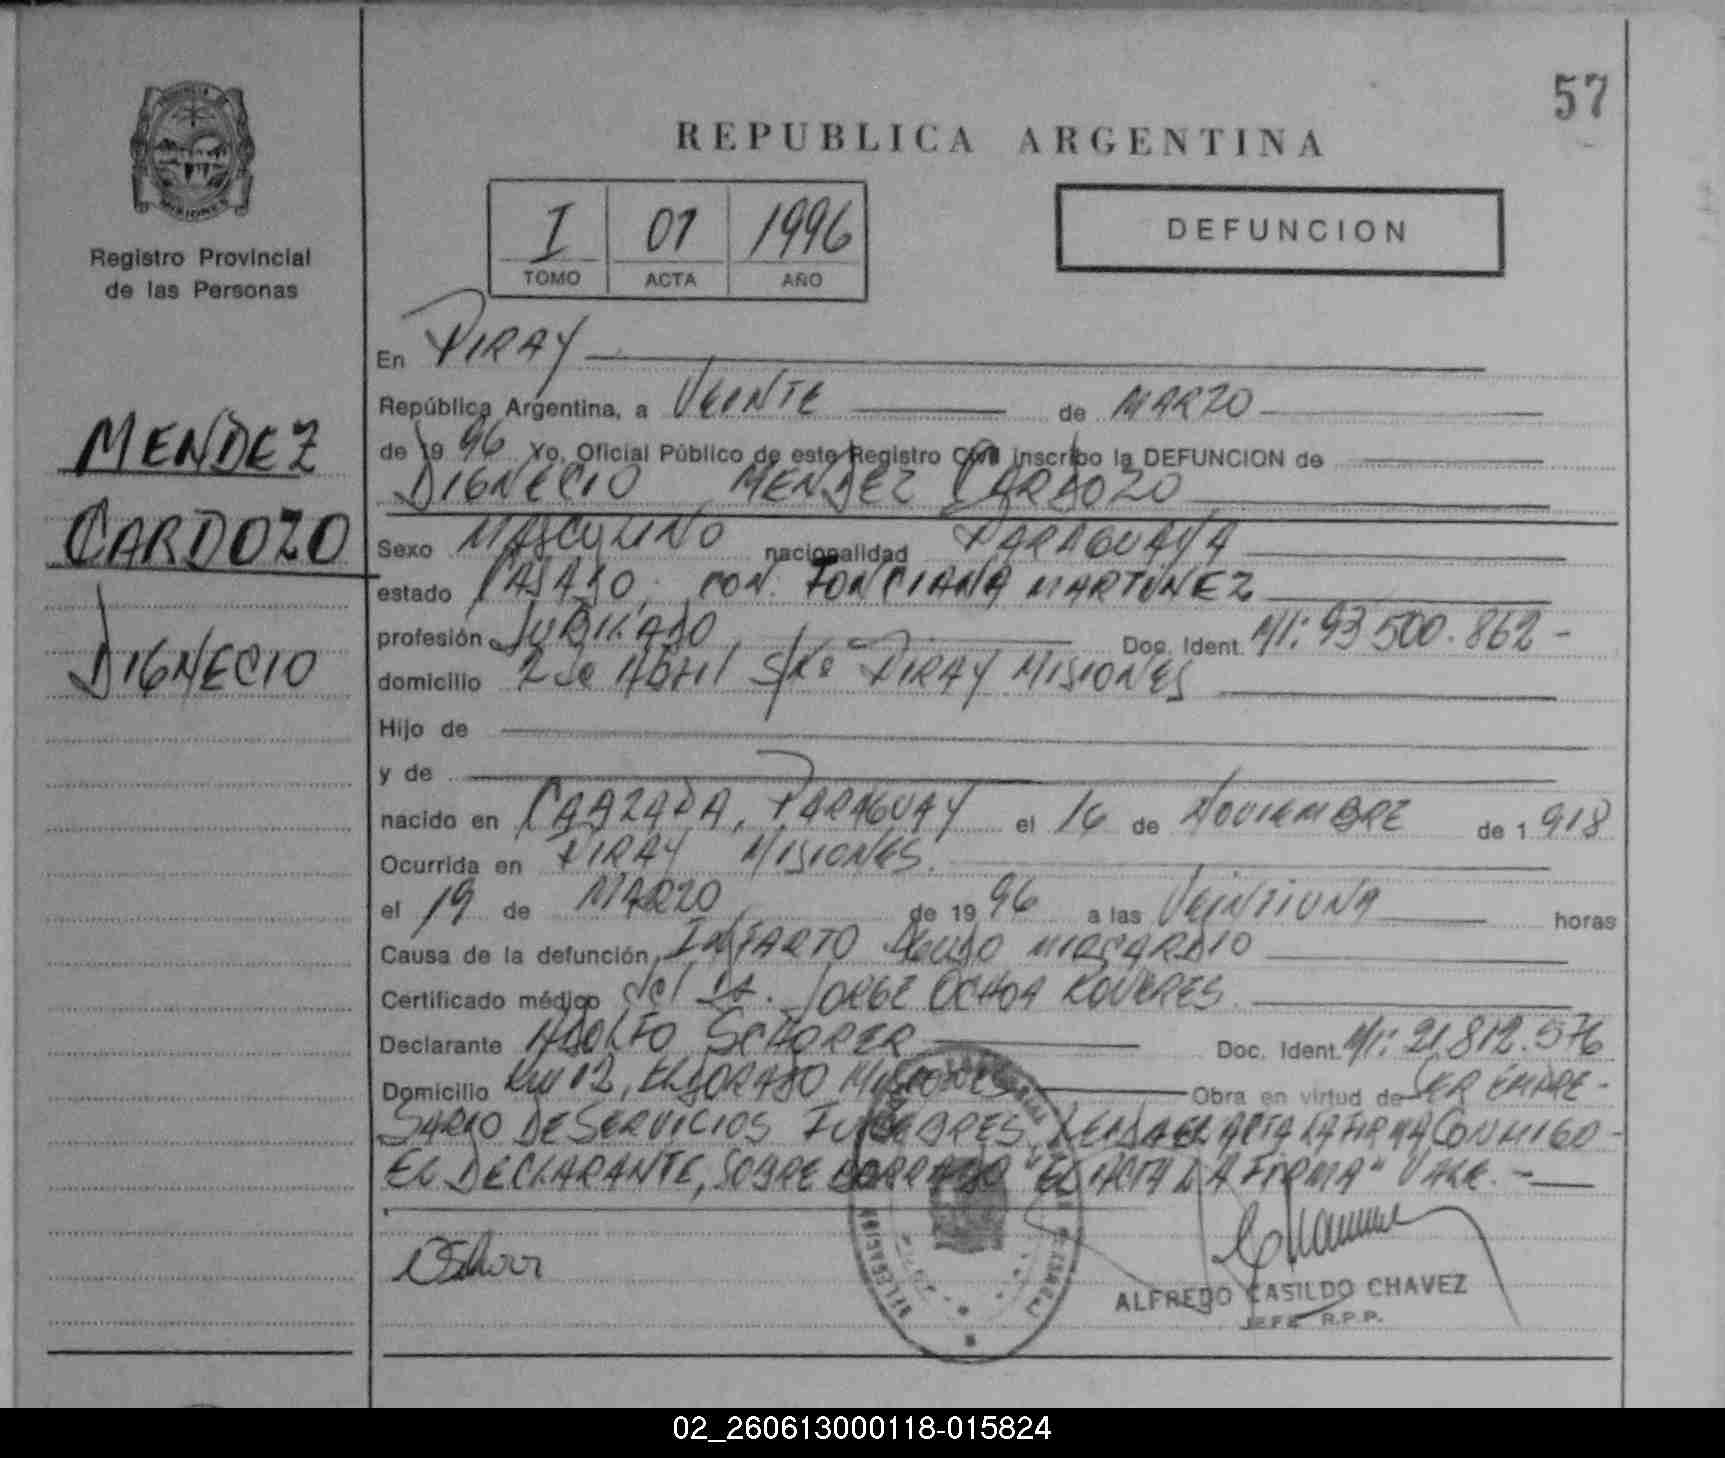 57
REPUBLICA ARGENTINA
I 01 1996
TOMO ACTA AÑO
DEFUNCION
MISIONES
Registro Provincial
de las Personas
MENDEZ
CARDOZO
DIGNECIO
En PIRAY
República Argentina, a VEINTE de MARZO
de 19 96 Yo, Oficial Público de este Registro Civil inscribo la DEFUNCION de
DIGNECIO MENDEZ CARDOZO
Sexo MASCULINO nacionalidad PARAGUAYA
estado CASADO, CON. FONCIANA MARTINEZ
profesión JUBILADO Doc. Ident. MI: 93 500.862-
domicilio 2 de Abril S/Nº PIRAY MISIONES
Hijo de
y de
nacido en CAAZAPA, PARAGUAY el 16 de NOVIEMBRE de 1 918
Ocurrida en PIRAY MISIONES.
el 19 de MARZO de 19 96 a las VEINTIUNA horas
Causa de la defunción INFARTO AGUDO MIOCARDIO
Certificado médico del Dr. JORGE OCHOA ROVERES
Declarante ADOLFO SCHORER Doc. Ident. MI: 21.812.576
Domicilio Km 12, ELDORADO MISIONES Obra en virtud de SER EMPRE-
SARIO DE SERVICIOS FUNEBRES. LEIDA EL ACTA LA FIRMA CONMIGO-
EL DECLARANTE, SOBRE BORRADO "EL ACTA LA FIRMA" VALE.-
ALFREDO CASILDO CHAVEZ
JEFE R.P.P.
02_260613000118-015824